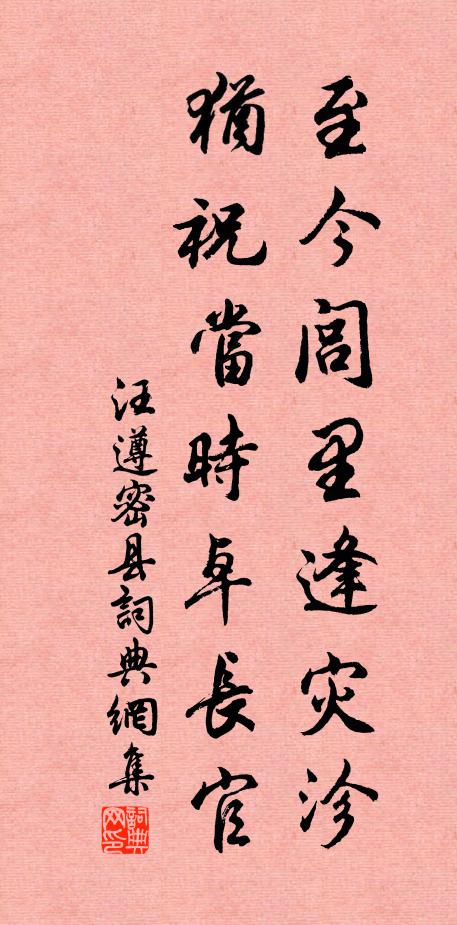 至今闾里逢灾沴
猶祝當時卓長官
汪遵密县詞典網集
詞典网印